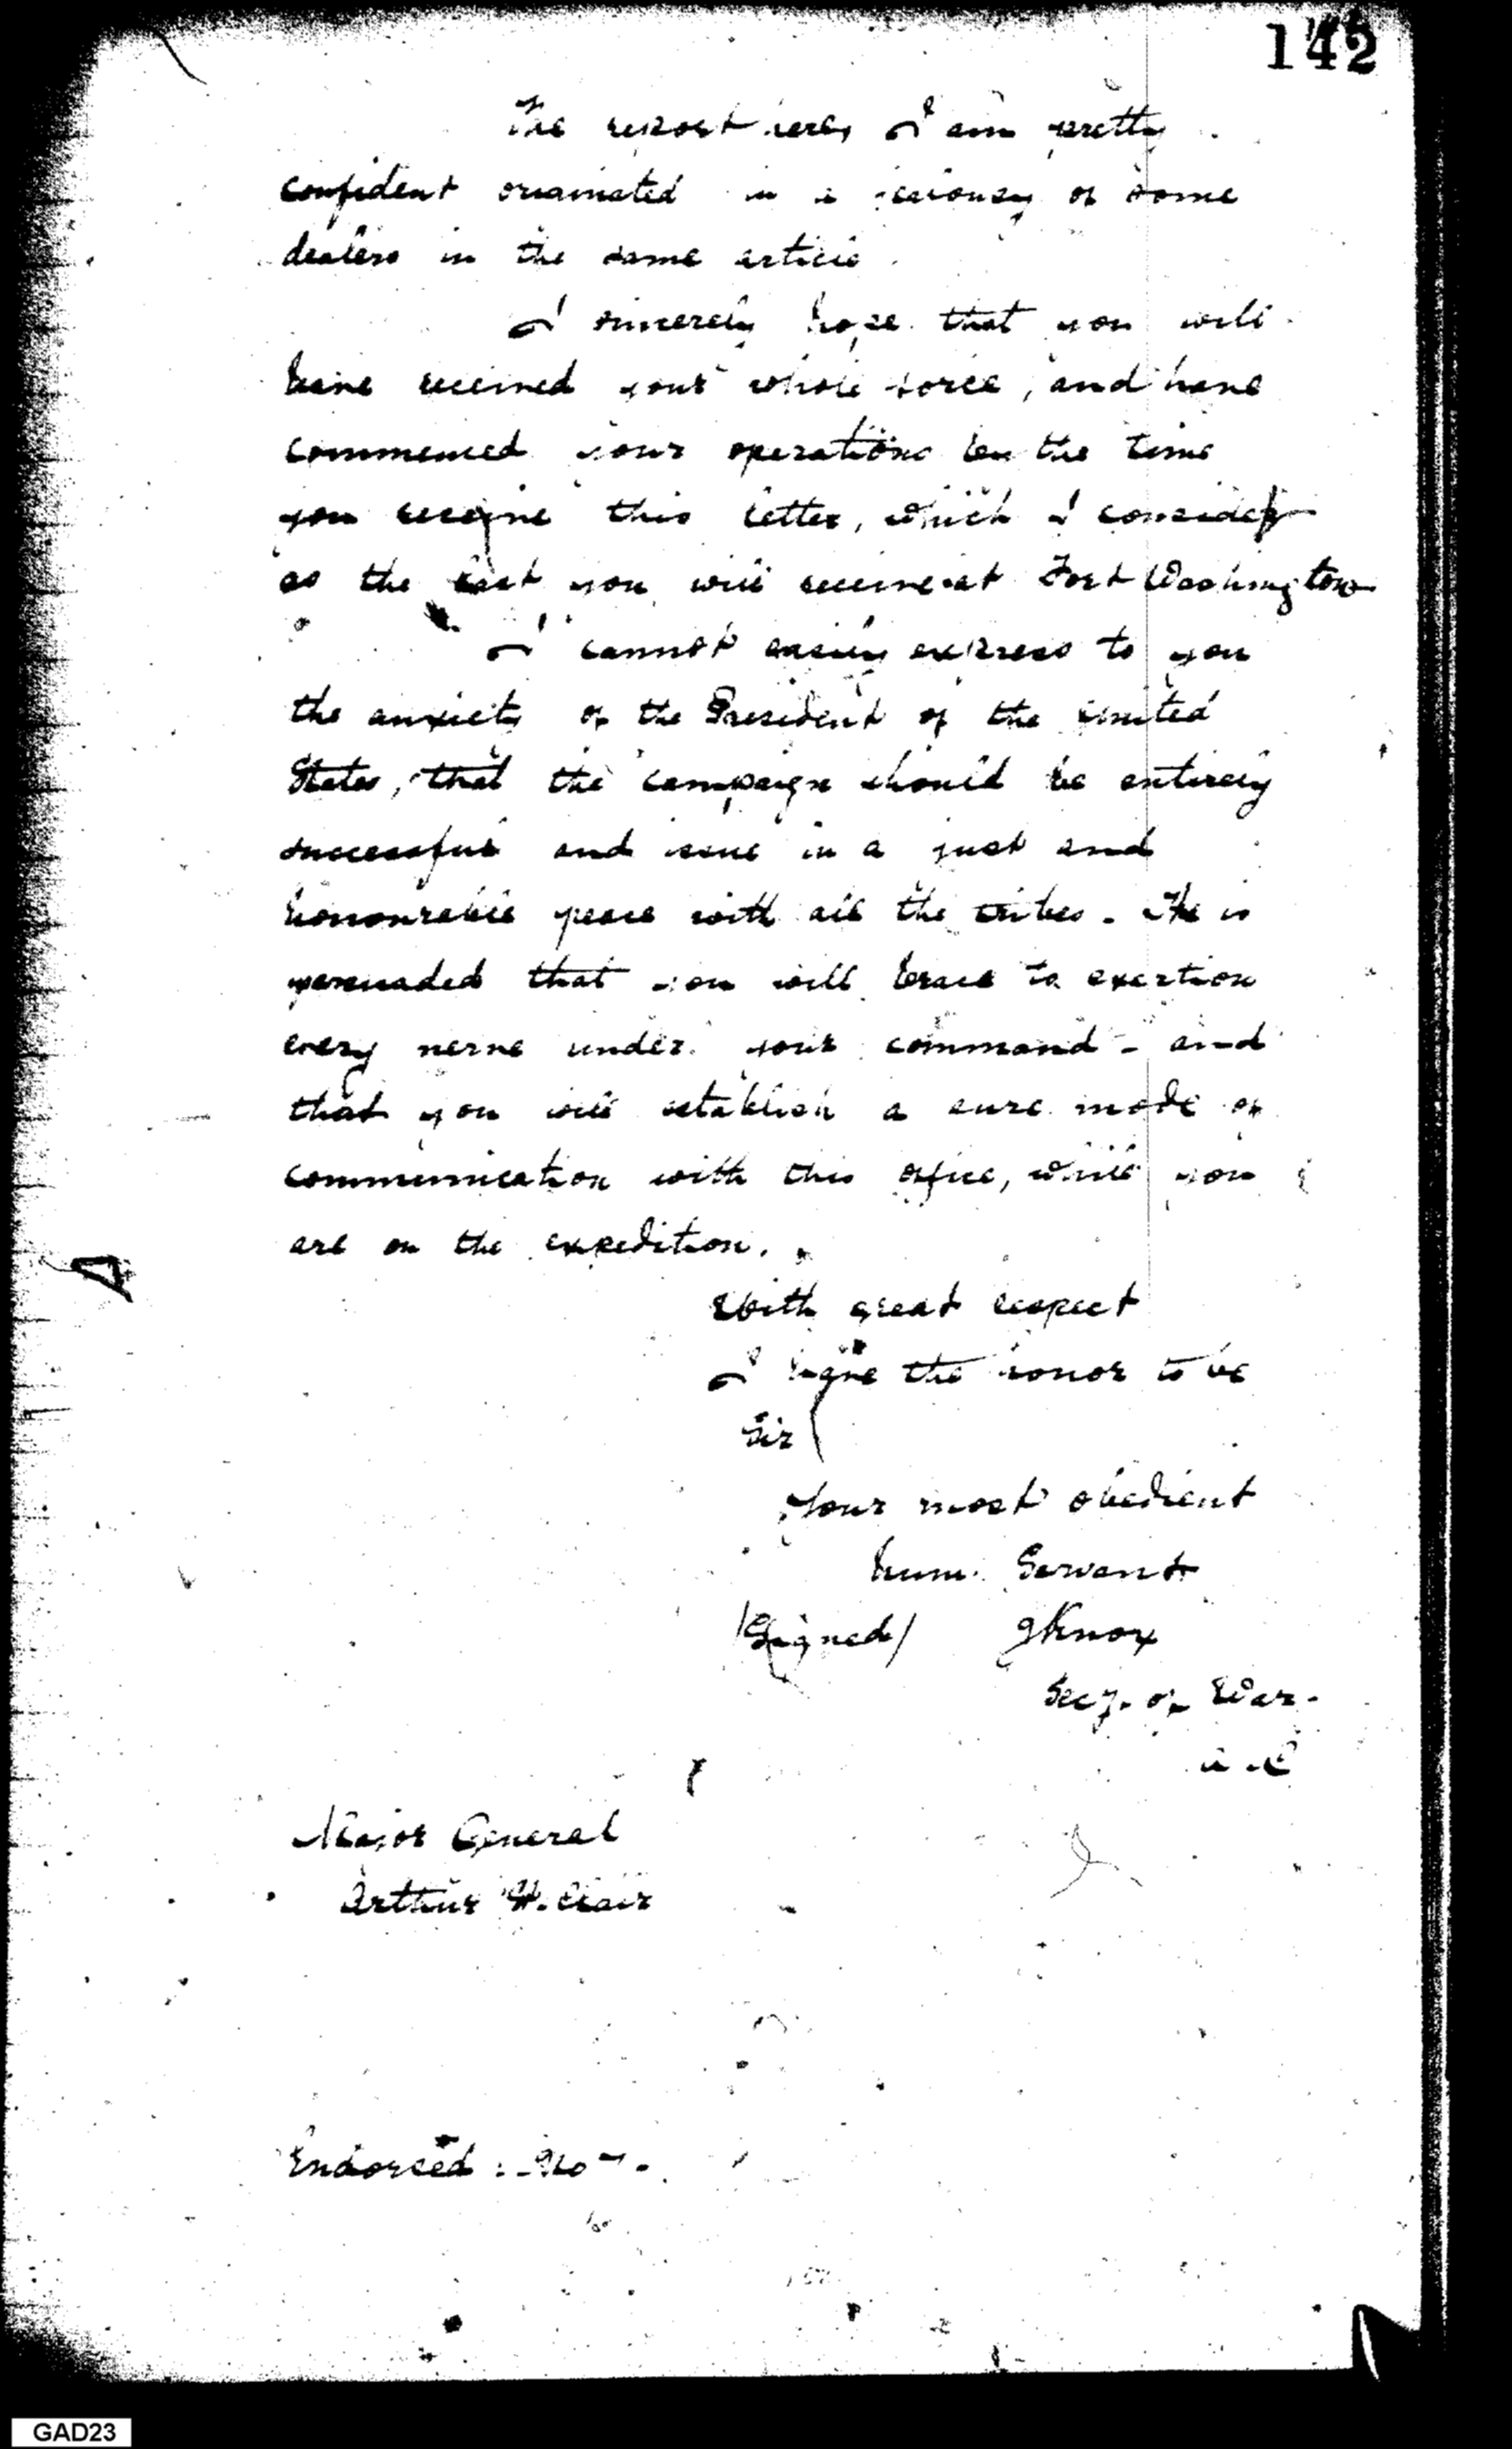 142
The report here, I am pretty
confident originated in a jealousy of some
dealers in the same article.
I sincerely hope that you will
have received your whole force, and have
commenced your operations by the time
you receive this letter, which I consider
as the last you will receive at Fort Washington
I cannot easily express to you
the anxiety of the President of the United
States, that the campaign should be entirely
successful and issue in a just and
honourable peace with all the tribes. He is
persuaded that you will brace to exertion
every nerve under your command - and
that you will establish a sure mode of
communication with this office, while you
are on the expedition.
With great respect
I have the honor to be
Sir
Your most obedient
hum. Servant
/Signed/ HKnox
Secy. of War.
Major General
Arthur St. Clair
Endorsed: - No
GAD23